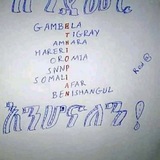 GAMBELA
TIGRAY
AMHARA
HARERI
OROMIA
SNNP
SOMALI
AFAR
BENISHANGUL
እንሆናለን !